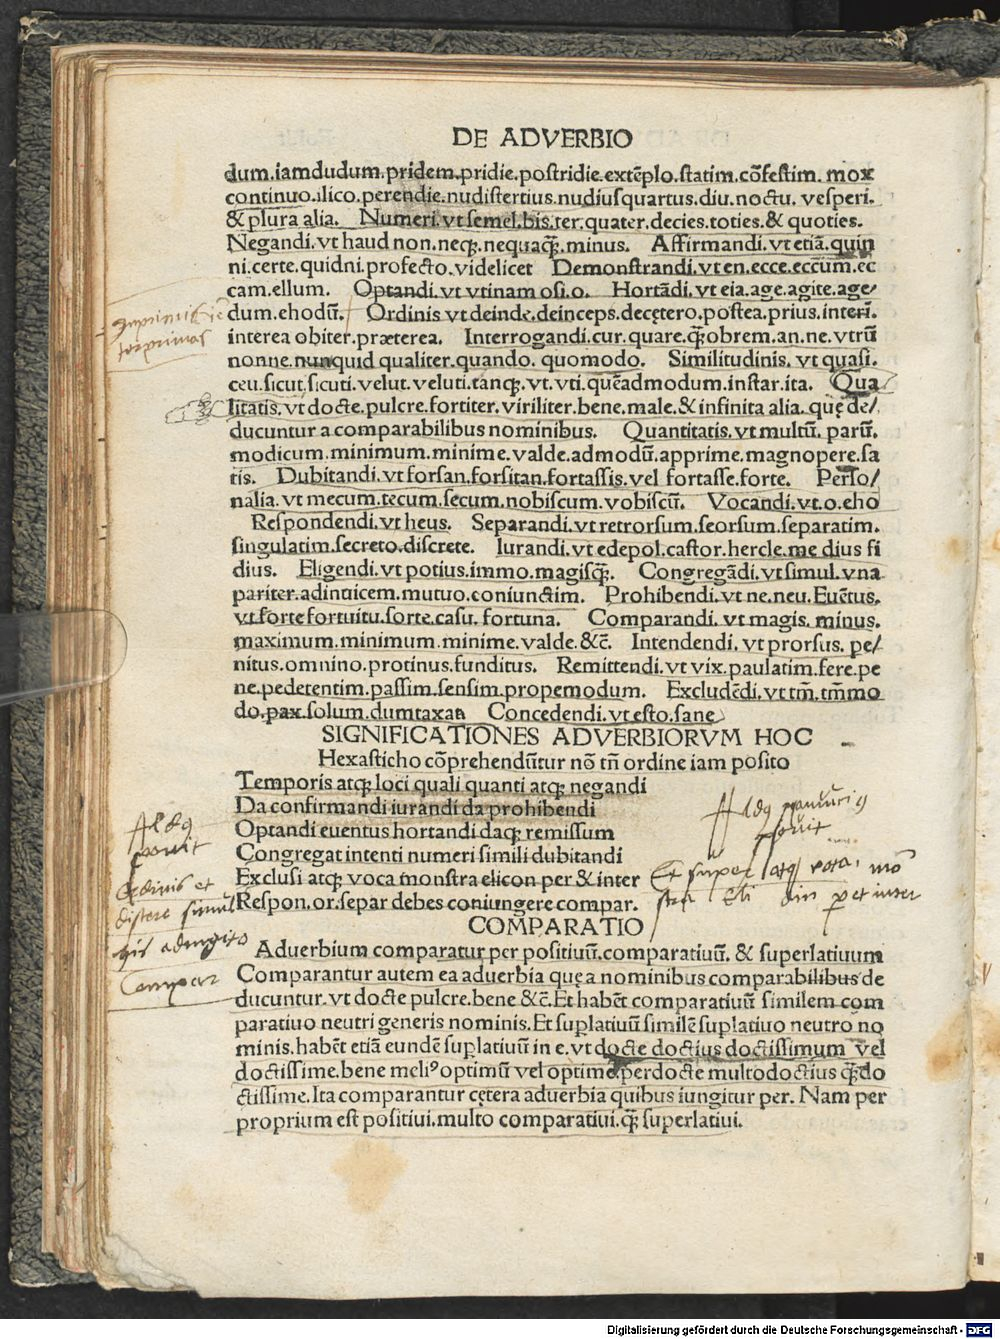 DE ADVERBIO
dum.iamdudum.pridem.pridie.postridie.extēplo.statim.cōfestim.mox
continuo.ilico.perendie.nudistertius.nudiusquartus.diu.noctu.vesperi.
& plura alia. Numeri.vt semel.bis.ter.quater.decies.toties.& quoties.
Negandi.vt haud non.neqꝫ.nequaqꝫ̄.minus. Affirmandi.vt etiā.quin
ni.certe.quidni.profecto.videlicet Demonstrandi.vt en.ecce.eccum.ec
cam.ellum. Optandi.vt vtinam osi.o. Hortādi.vt eia.age.agite.age/
dum.ehodū. Ordinis vt deinde.deinceps.decętero.postea.prius.interī.
interea obiter.præterea. Interrogandi.cur.quare.qꝫ̄obrem.an.ne.vtrū
nonne.nunquid qualiter.quando.quomodo. Similitudinis.vt quasi.
ceu.sicut.sicuti.velut.veluti.tanqꝫ.vt.vti.quēadmodum.instar.ita. Qua
litatis.vt docte.pulcre.fortiter.viriliter.bene.male.& infinita alia.quę de/
ducuntur a comparabilibus nominibus. Quantitatis.vt multū.parū.
modicum.minimum.minime.valde.admodū.apprime.magnopere.sa
tis. Dubitandi.vt forsan.forsitan.fortassis.vel fortasse.forte. Perso/
nalia.vt mecum.tecum.secum.nobiscum.vobiscū. Vocandi.vt.o.eho
Respondendi.vt heus. Separandi.vt retrorsum.seorsum.separatim.
singulatim.secreto.discrete. Iurandi.vt edepol.castor.hercle.me dius fi
dius. Eligendi.vt potius.immo.magisqꝫ̄. Congregādi.vt simul.vna
pariter.adinuicem.mutuo.coniunctim. Prohibendi.vt ne.neu. Euētus.
vt forte fortuitu.sorte.casu.fortuna. Comparandi.vt magis.minus.
maximum.minimum.minime.valde.&c̄. Intendendi.vt prorsus.pe/
nitus.omnino.protinus.funditus. Remittendi.vt vix.paulatim.fere.pe
ne.pedetentim.passim.sensim.propemodum. Excludēdi.vt tm̄.tm̄mo
do.pax.solum.dumtaxat Concedendi.vt esto.sane
SIGNIFICATIONES ADVERBIORVM HOC
Hexasticho cōprehendūtur nō tn̄ ordine iam posito
Temporis atqꝫ loci quali quanti atqꝫ negandi
Da confirmandi iurandi da prohibendi
Optandi euentus hortandi daqꝫ remissum
Congregat intenti numeri simili dubitandi
Exclusi atqꝫ voca monstra elicon per & inter
Respon.or.separ debes coniungere compar.
Ordinis et
COMPARATIO
Aduerbium comparatur per positiuū.comparatiuū. & superlatiuum
Comparantur autem ea aduerbia que a nominibus comparabilibus de
ducuntur.vt docte pulcre.bene &c̄. Et habēt comparatiuū similem com
paratiuo neutri generis nominis. Et suplatiuū similē suplatiuo neutro no
minis.habēt etiā eundē suplatiuū in e.vt docte doctius doctissimum vel
doctissime.bene meliꝰ optimū vel optime.perdocte multodoctius qꝫ̄ do
ctissime. Ita comparantur cętera aduerbia quibus iungitur per. Nam per
proprium est positiui.multo comparatiui.qꝫ̄ superlatiui.
Digitalisierung gefördert durch die Deutsche Forschungsgemeinschaft - DFG